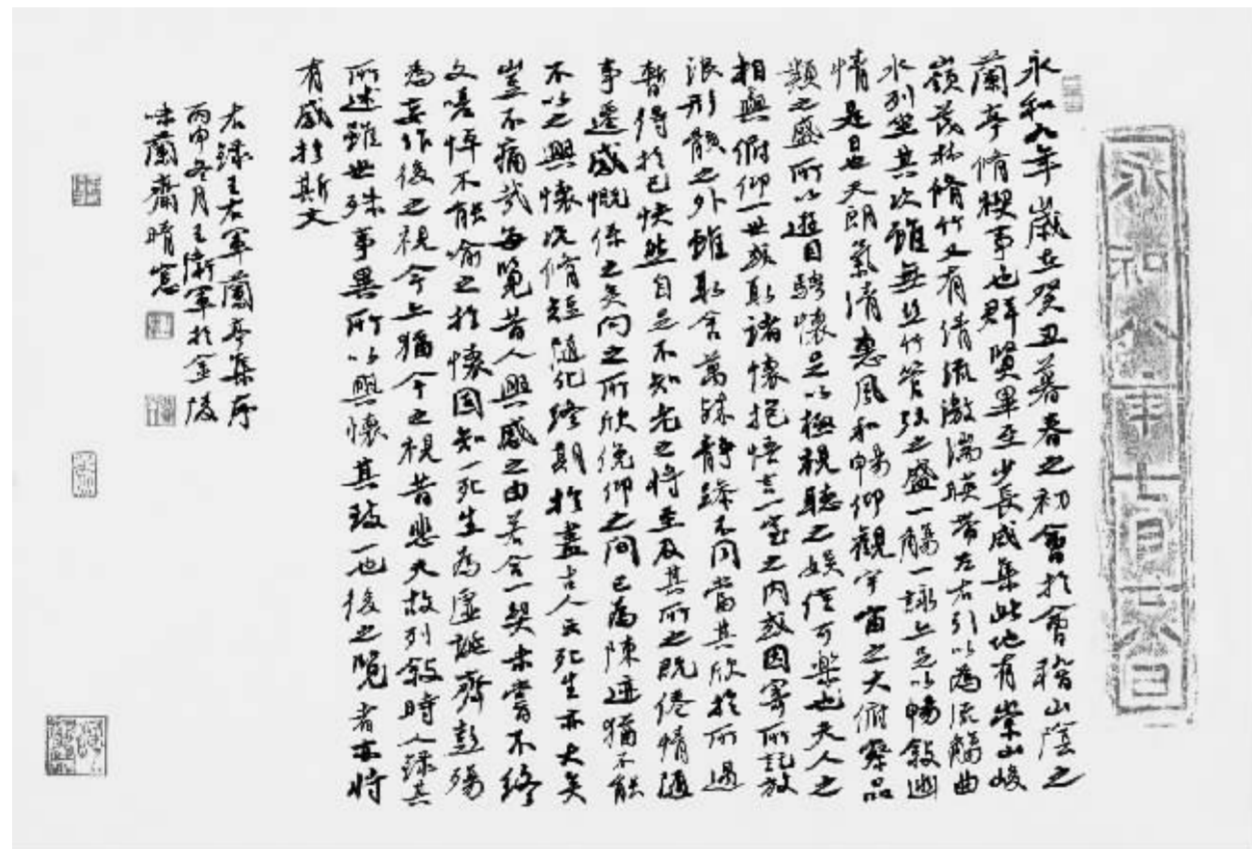 永和
永和九年歲在癸丑暮春之初會於會稽山陰之
蘭亭脩禊事也群賢畢至少長咸集此地有崇山峻
嶺茂林脩竹又有清流激湍暎帶左右引以為流觴曲
水列坐其次雖無絲竹管弦之盛一觴一詠亦足以暢敘幽
情是日也天朗氣清惠風和暢仰觀宇宙之大俯察品
類之盛所以遊目騁懷足以極視聽之娛信可樂也夫人之
相與俯仰一世或取諸懷抱悟言一室之內或因寄所託放
浪形骸之外雖取舍萬殊靜躁不同當其欣於所遇
暫得於己快然自足不知老之將至及其所之既倦情隨
事遷感慨係之矣向之所欣俛仰之間已為陳迹猶不能
不以之興懷況脩短隨化終期於盡古人云死生亦大矣
豈不痛哉每覽昔人興感之由若合一契未嘗不臨
文嗟悼不能喻之於懷固知一死生為虛誕齊彭殤
為妄作後之視今亦猶今之視昔悲夫故列敘時人錄其
所述雖世殊事異所以興懷其致一也後之覽者亦將
有感於斯文
右錄王右軍蘭亭集序
丙申冬月王衛軍於金陵
味蘭齋晴窗